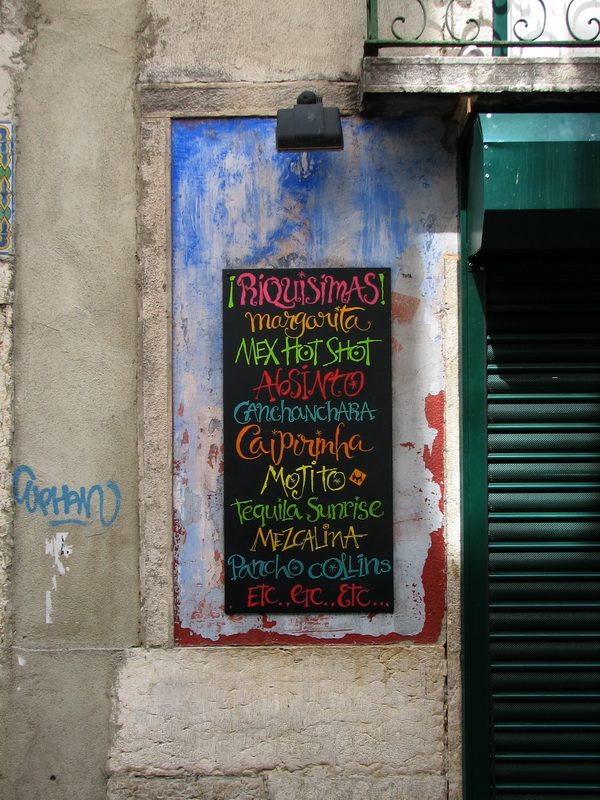 ¡RIQUISIMAS!
margarita
MEX HOT SHOT
AbSiNTO
CANCHANCHARA
Caipirinha
MOJITO
Tequila Sunrise
MEZCALINA
Pancho COLLINS
ETC.. etc.. Etc...